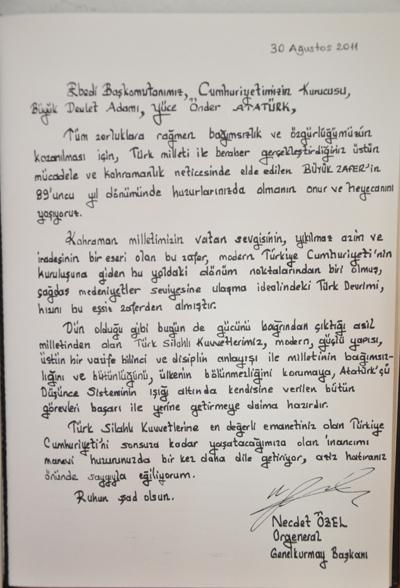 30 Ağustos 2011
Ebedi Başkomutanımız, Cumhuriyetimizin Kurucusu,
Büyük Devlet Adamı, Yüce Önder ATATÜRK,
Tüm zorluklara rağmen bağımsızlık ve özgürlüğümüzün
kazanılması için, Türk milleti ile beraber gerçekleştirdiğiniz üstün
mücadele ve kahramanlık neticesinde elde edilen BÜYÜK ZAFER'in
89'uncu yıl dönümünde huzurlarınızda olmanın onur ve heyecanını
yaşıyoruz.
Kahraman milletimizin vatan sevgisinin, yıkılmaz azim ve
iradesinin bir eseri olan bu zafer, modern Türkiye Cumhuriyeti'nin
kuruluşuna giden bu yoldaki dönüm noktalarından biri olmuş,
çağdaş medeniyetler seviyesine ulaşma idealindeki Türk Devrimi,
hızını bu eşsiz zaferden almıştır.
Dün olduğu gibi bugün de gücünü bağrından çıktığı asil
milletinden alan Türk Silahlı Kuvvetlerimiz, modern, güçlü yapısı,
üstün bir vazife bilinci ve disiplin anlayışı ile milletinin bağımsız-
lığını ve bütünlüğünü, ülkenin bölünmezliğini korumaya, Atatürk'çü
Düşünce Sisteminin ışığı altında kendisine verilen bütün
görevleri başarı ile yerine getirmeye daima hazırdır.
Türk Silahlı Kuvvetlerine en değerli emanetiniz olan Türkiye
Cumhuriyeti'ni sonsuza kadar yaşatacağımıza olan inancımı
manevi huzurunuzda bir kez daha dile getiriyor, aziz hatıranız
önünde saygıyla eğiliyorum.
Ruhun şad olsun.
Necdet ÖZEL
Orgeneral
Genelkurmay Başkanı